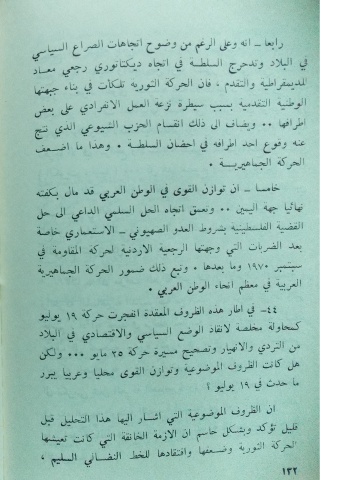 رابعا ـ انه وعلى الرغم من وضوح اتجاهات الصراع السياسي
في البلاد وتدحرج السلطة في اتجاه ديكتاتوري رجعي معاد
للديمقراطية والتقدم ، فان الحركة الثورية تلكأت في بناء جبهتها
الوطنية التقدمية بسبب سيطرة نزعة العمل الانفرادي على بعض
اطرافها . . ويضاف الى ذلك انقسام الحزب الشيوعي الذي نتج
عنه وقوع احد اطرافه في احضان السلطة . وهذا ما اضعف
الحركة الجماهيرية .
خامسا ـ ان توازن القوى في الوطن العربي قد مال بكفته
نهائيا جهة اليمين . . وتعمق اتجاه الحل السلمي الداعي الى حل
القضية الفلسطينية بشروط العدو الصهيوني ـ الاستعماري خاصة
بعد الضربات التي وجهتها الرجعية الاردنية لحركة المقاومة في
سبتمبر ١٩٧٠ وما بعدها . وتبع ذلك ضمور الحركة الجماهيرية
العربية في معظم انحاء الوطن العربي .
٤٤ـ في اطار هذه الظروف المعقدة انفجرت حركة ١٩ يوليو
كمحاولة مخلصة لانقاذ الوضع السياسي والاقتصادي في البلاد
من التردي والانهيار وتصحيح مسيرة حركة ٢٥ مايو . . . ولكن
هل كانت الظروف الموضوعية وتوازن القوى محليا وعربيا يبرر
ما حدث في ١٩ يوليو ؟
ان الظروف الموضوعية التي اشار اليها هذا التحليل قبل
قليل تؤكد وبشكل حاسم ان الازمة الخانقة التي كانت تعيشها
الحركة الثورية وضعفها وافتقادها للخط النضالي السليم ،
١٣٢